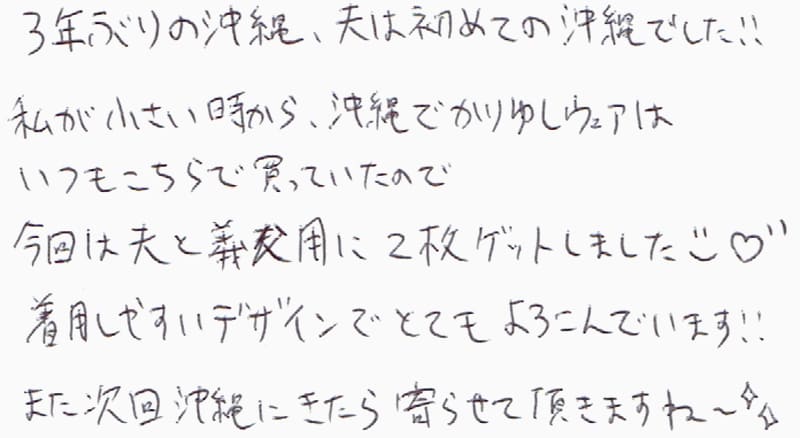 3年ぶりの沖縄、夫は初めての沖縄でした!!
私が小さい時から、沖縄でかりゆしウェアは
いつもこちらで買っていたので
今回は夫と義父用に2枚ゲットしました
着用しやすいデザインでとてもよろこんでいます!!
また次回沖縄にきたら寄らせて頂きますね～